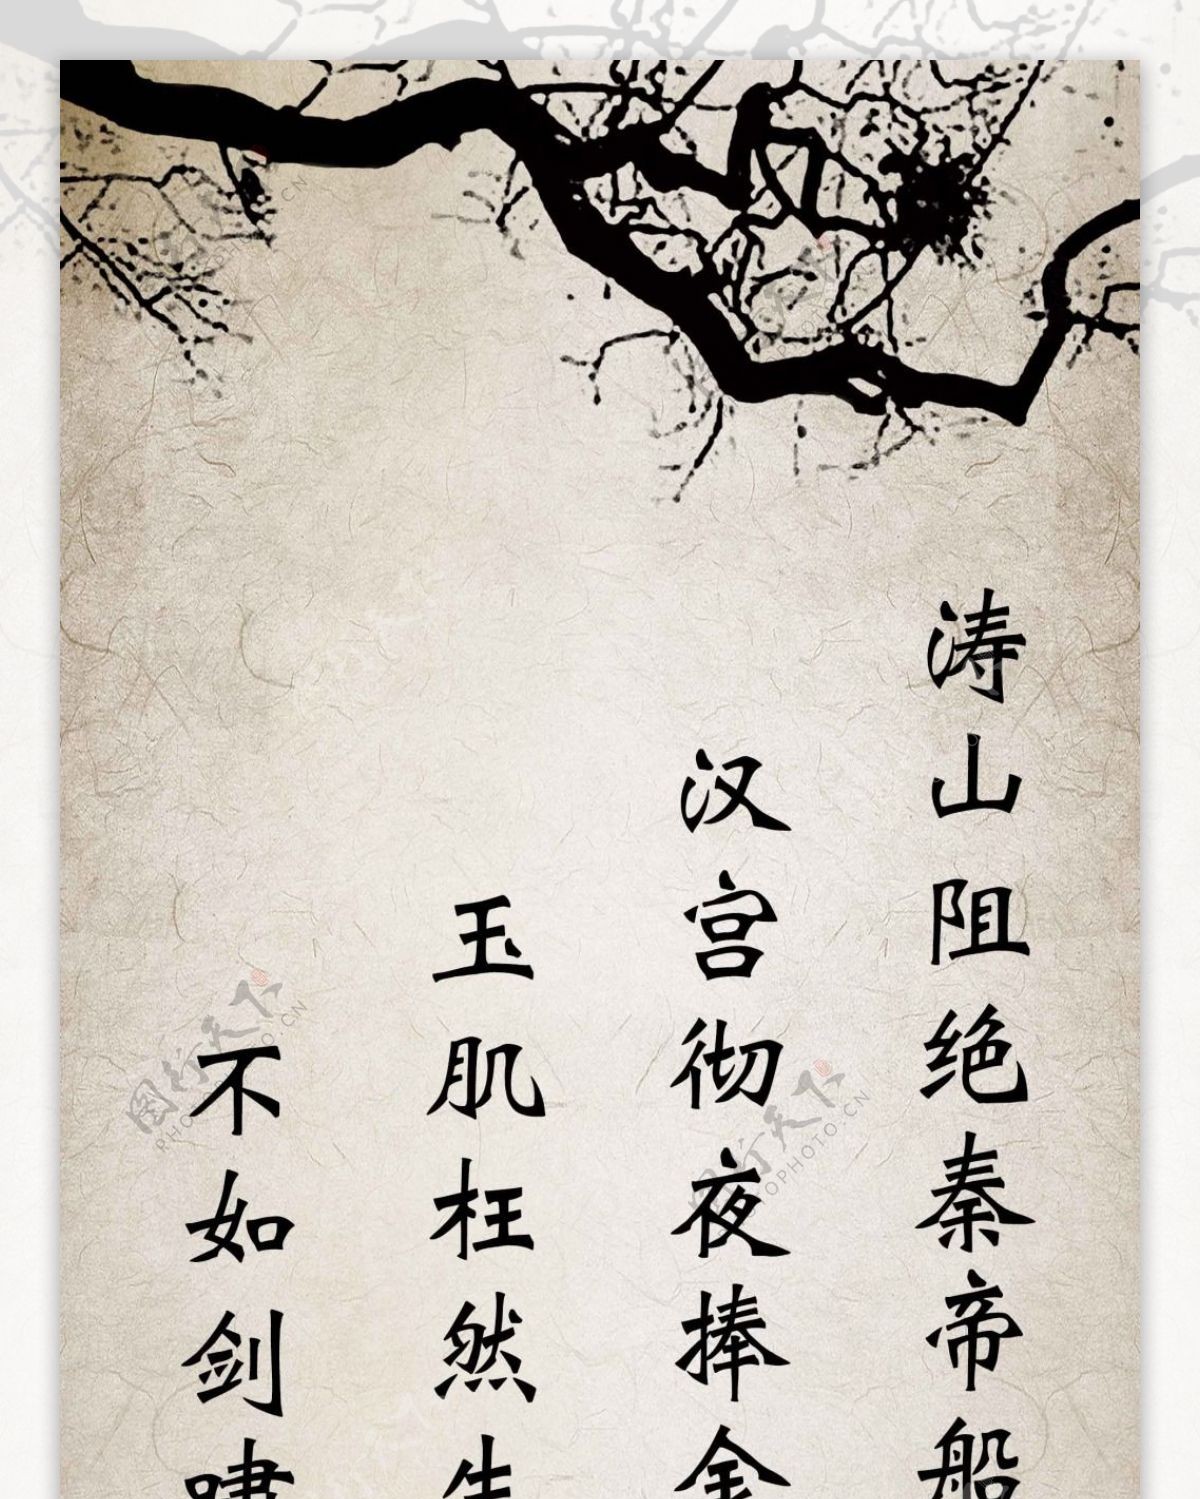 涛山阻绝秦帝船
汉宫彻夜捧金
玉肌枉然生
不如剑啸
图行天下
PHOTO.CN
图行天下
PHOTOPHOTO.CN